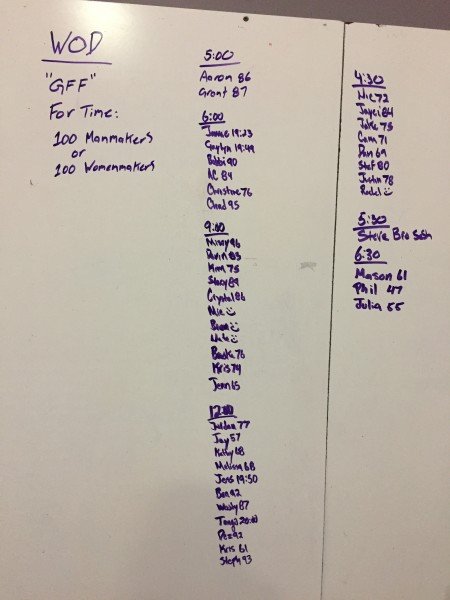 WOD
"GFF"
For Time:
100 Manmakers
or
100 Womenmakers
5:00
Aaron 86
Grant 87
6:00
Jamie 19:23
19:49
Bobbi 90
AC 84
Christine 76
Chad 95
9:00
Mindy 96
Devin 83
Kim 75
Stacy 89
Crystal 86
☺
☺
☺
76
Kris 74
Jenn 65
12:00
77
Jay 57
Kelsy 68
Melissa 68
Jess 19:50
Ben 92
87
20:00
Dez 92
Kris 61
Steph 93
4:30
Nic 72
Jayci 84
Jake 75
Cam 71
Dan 69
Stef 80
Justin 78
Rachel ☺
5:30
Steve Bro Sesh
6:30
Mason 61
Phil 47
Julia 55